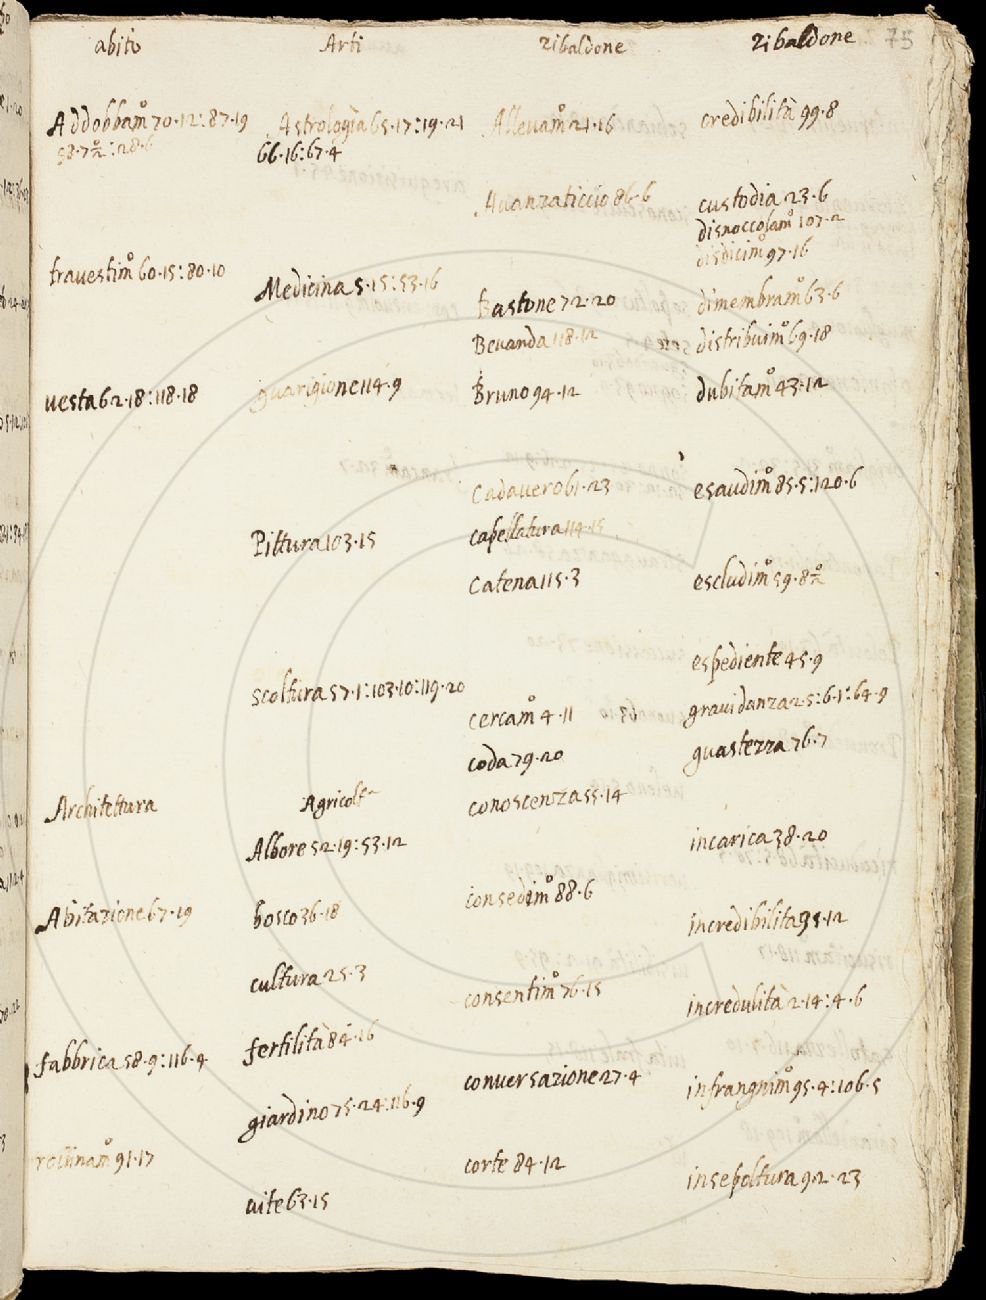 abito
Addobbamº 70·12:87·19
58·7 2º:28·6
travestimº 60·15:80·10
uesta 62·18:118·18
Architettura
Abitazione 67·19
fabbrica 58·9:116·4
rouinamº 91·17
Arti
Astrologia 65·17:19·21
66·16:67·4
Medicina 5·15:53·16
guarigione 114·9
Pittura 103·15
scoltura 57·1:103·10:119·20
Agricolt
Albore 52·19:53·12
bosco 36·18
cultura 25·3
fertilità 84·16
giardino 75·24:116·9
uite 63·15
Zibaldone
Alleuamº 21·16
Auanzaticcio 86·6
Bastone 72·20
Beuanda 118·12
Bruno 94·12
Cadauero 61·23
capellatura 114·15
Catena 115·3
cercamº 4·11
coda 79·20
conoscenza 55·14
consedimº 88·6
consentimº 76·15
conuersazione 27·4
corte 84·12
Zibaldone 75
credibilità 99·8
custodia 23·6
disnoccolamº 107·2
disdicimº 97·16
dimembramº 63·6
distribuimº 69·18
dubitamº 43·12
esaudimº 85·5:120·6
escludimº 59·8 2º
espediente 45·9
grauidanza 25:6·1:64·9
guastezza 76·7
incarica 38·20
incredibilita 95·12
incredulità 2·14:4·6
infrangnimº 95·4:106·5
insepoltura 92·23